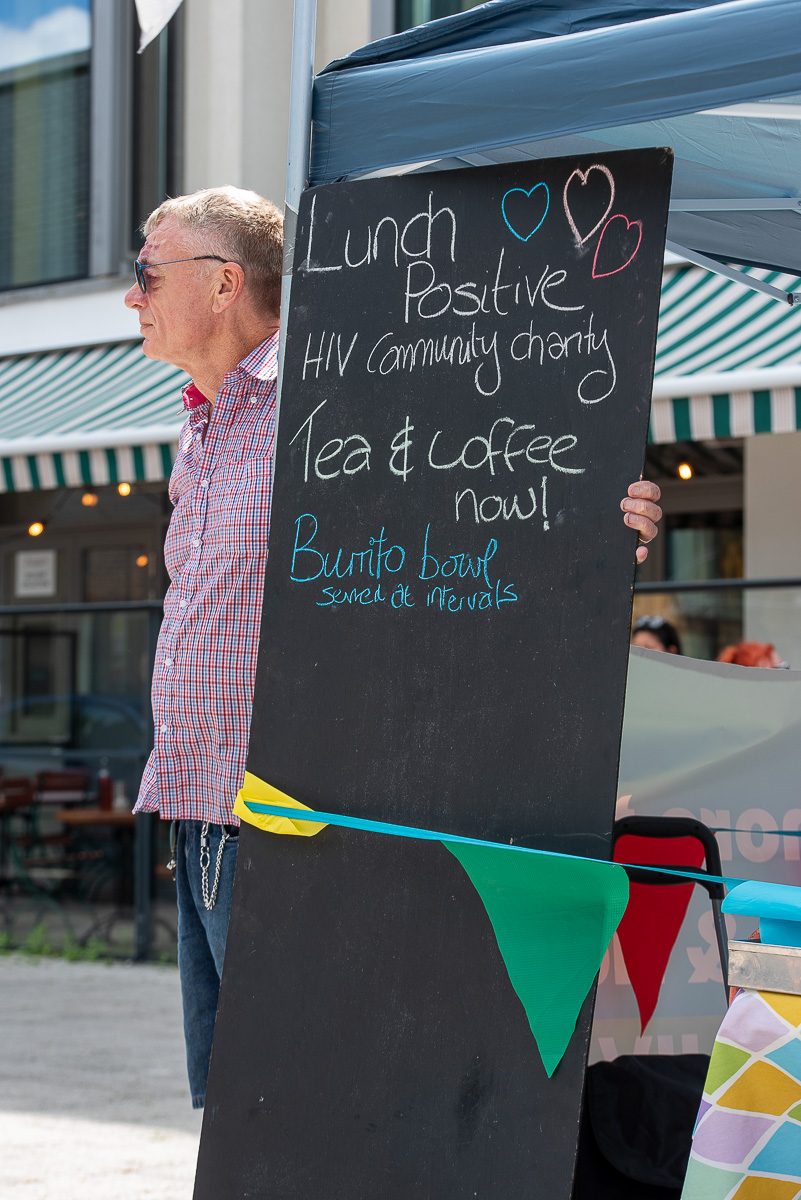 Lunch
Positive
HIV Community charity
Tea & coffee
now!
Burrito bowl
served at intervals
&